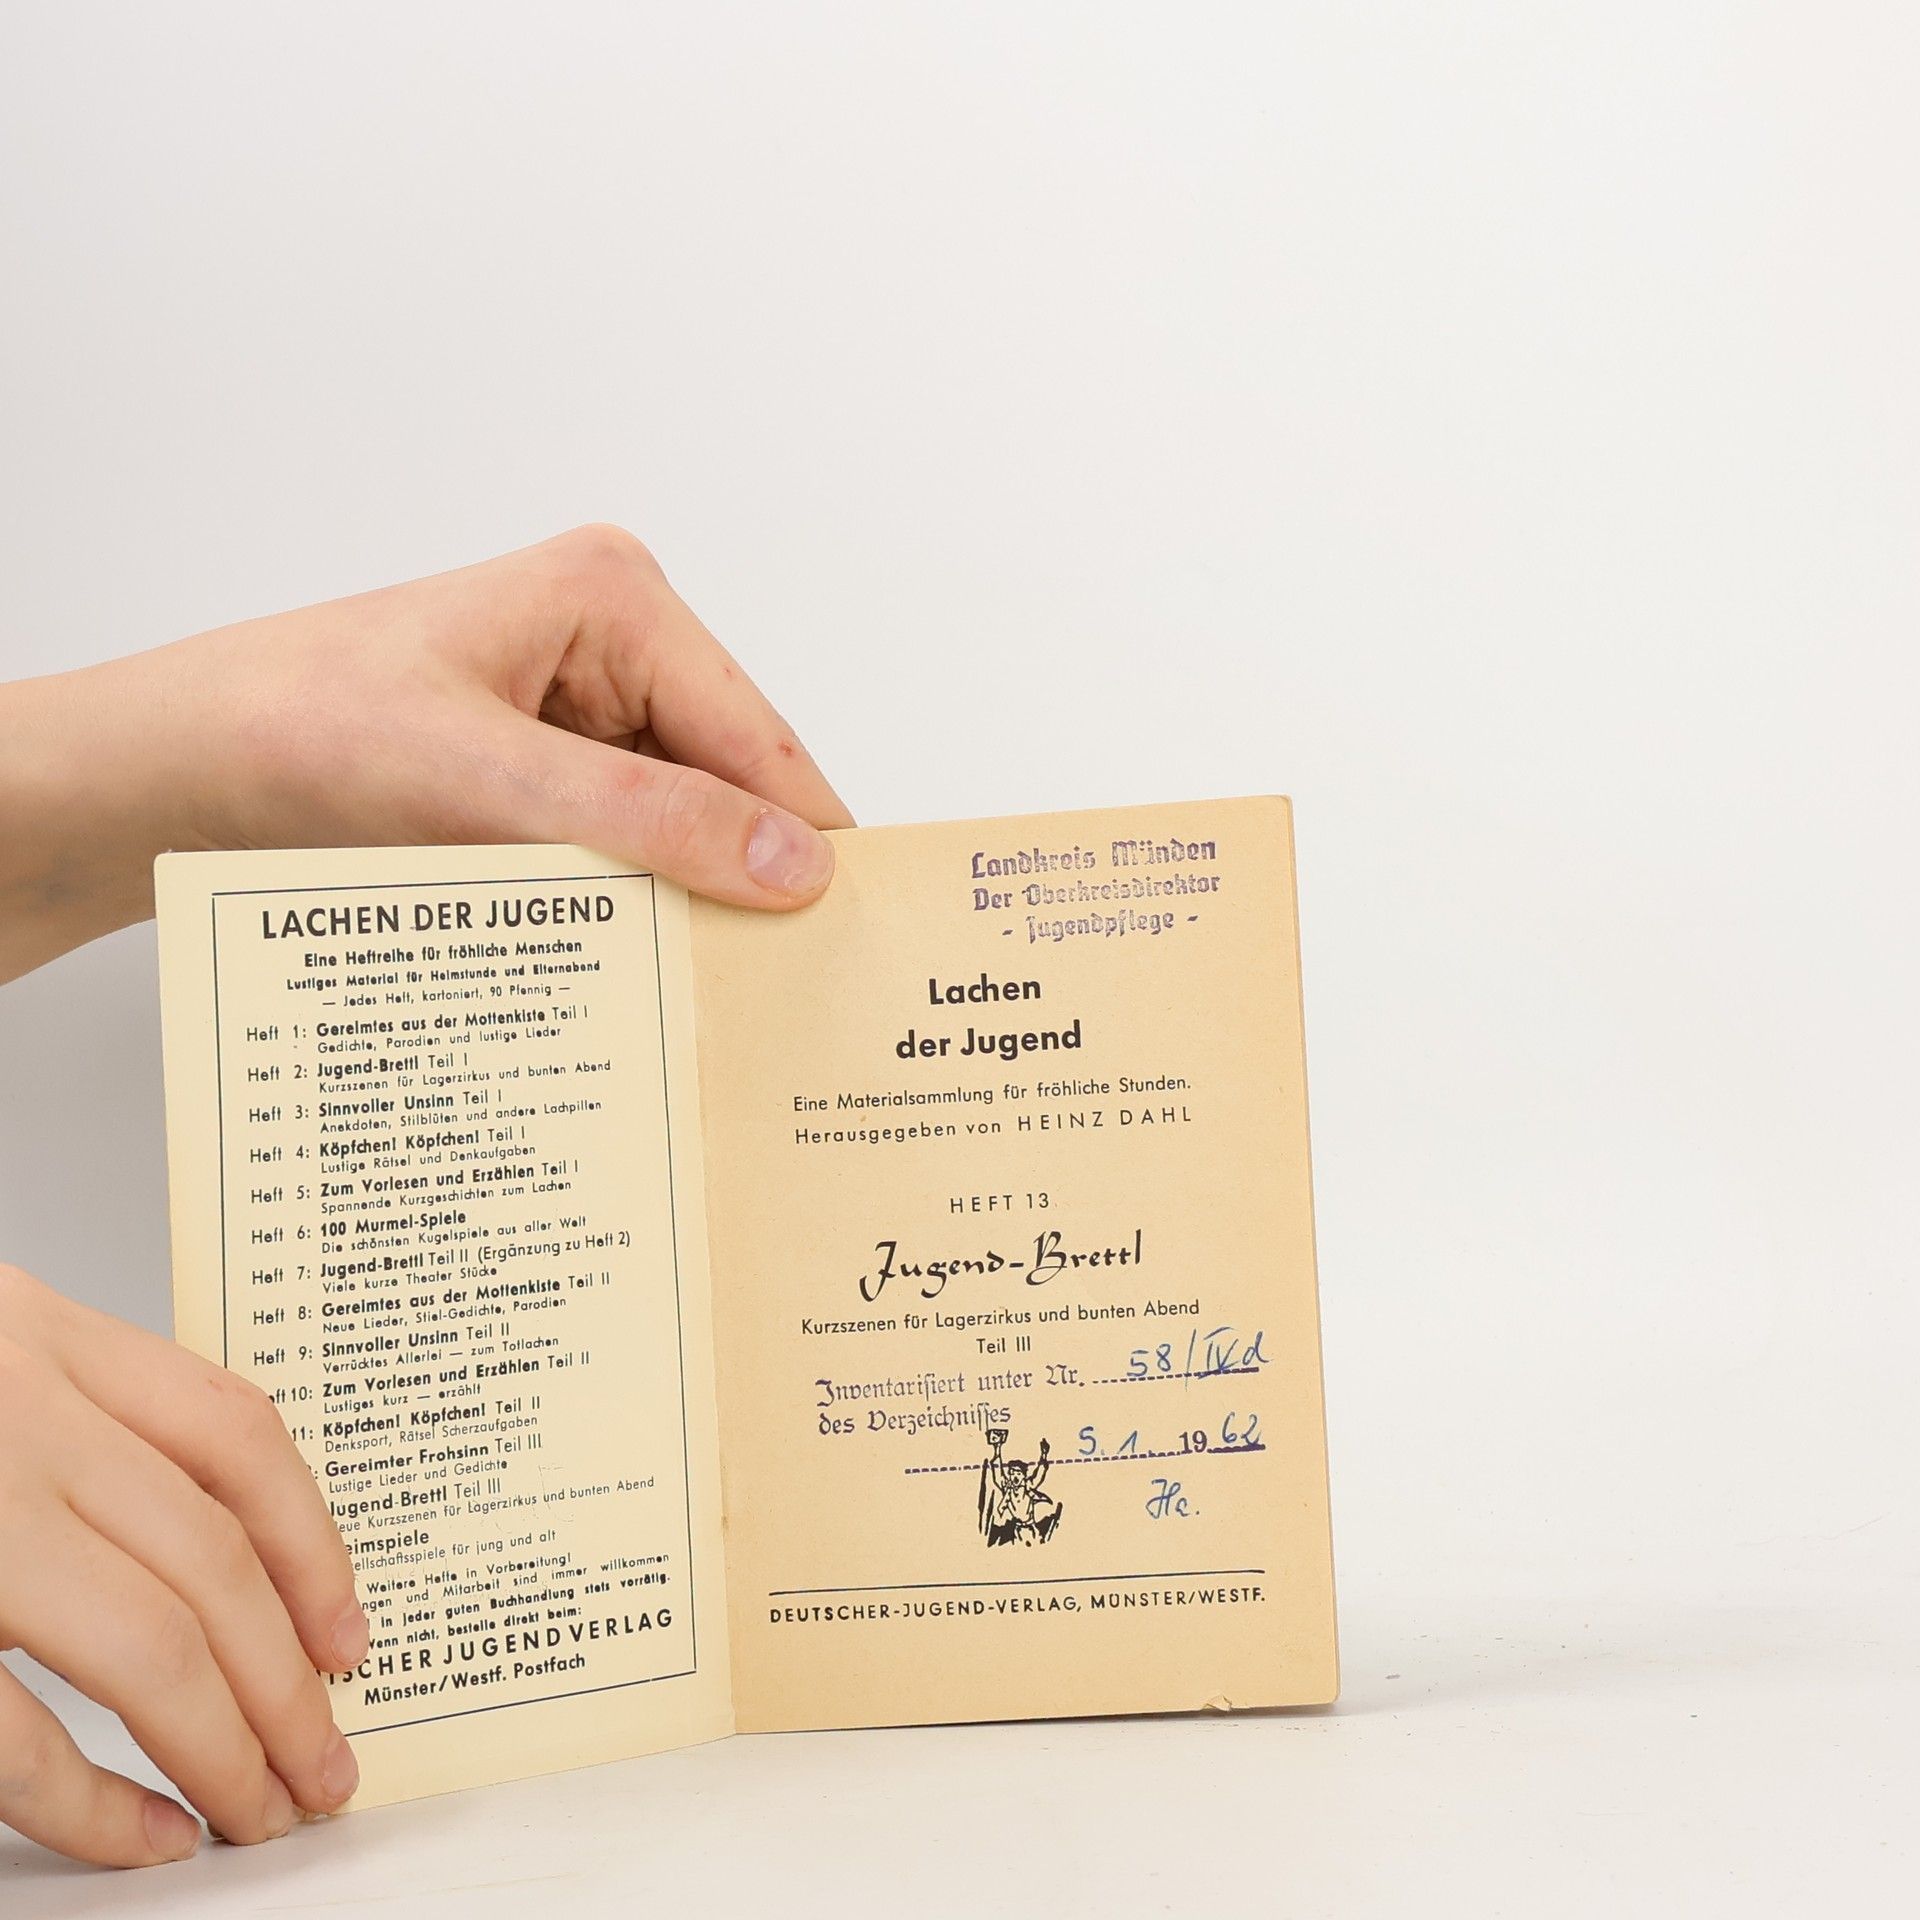 LACHEN DER JUGEND
Eine Heftreihe für fröhliche Menschen
Lustiges Material für Heimstunde und Elternabend
— Jedes Heft, kartoniert, 90 Pfennig —
Heft 1: Gereimtes aus der Mottenkiste Teil I
Gedichte, Parodien und lustige Lieder
Heft 2: Jugend-Brettl Teil I
Kurzszenen für Lagerzirkus und bunten Abend
Heft 3: Sinnvoller Unsinn Teil I
Anekdoten, Stilblüten und andere Lachpillen
Heft 4: Köpfchen! Köpfchen! Teil I
Lustige Rätsel und Denkaufgaben
Heft 5: Zum Vorlesen und Erzählen Teil I
Spannende Kurzgeschichten zum Lachen
Heft 6: 100 Murmel-Spiele
Die schönsten Kugelspiele aus aller Welt
Heft 7: Jugend-Brettl Teil II (Ergänzung zu Heft 2)
Viele kurze Theater Stücke
Heft 8: Gereimtes aus der Mottenkiste Teil II
Neue Lieder, Stiel-Gedichte, Parodien
Heft 9: Sinnvoller Unsinn Teil II
Verrücktes Allerlei — zum Totlachen
ft 10: Zum Vorlesen und Erzählen Teil II
Lustiges kurz — erzählt
11: Köpfchen! Köpfchen! Teil II
Denksport, Rätsel Scherzaufgaben
: Gereimter Frohsinn Teil III
Lustige Lieder und Gedichte
Jugend-Brettl Teil III
eue Kurzszenen für Lagerzirkus und bunten Abend
eimspiele
ellschaftsspiele für jung und alt
Weitere Hefte in Vorbereitung!
ngen und Mitarbeit sind immer willkommen
in jeder guten Buchhandlung stets vorrätig.
Wenn nicht, bestelle direkt beim:
TSCHER JUGENDVERLAG
Münster/Westf. Postfach
Landkreis Münden
Der Oberkreisdirektor
- Jugendpflege -
Lachen
der Jugend
Eine Materialsammlung für fröhliche Stunden.
Herausgegeben von HEINZ DAHL
HEFT 13
Jugend-Brettl
Kurzszenen für Lagerzirkus und bunten Abend
Teil III
Inventarisiert unter Nr. 58/IVd
des Verzeichnisses
5. 1. 1962
Ha.
DEUTSCHER-JUGEND-VERLAG, MÜNSTER/WESTF.